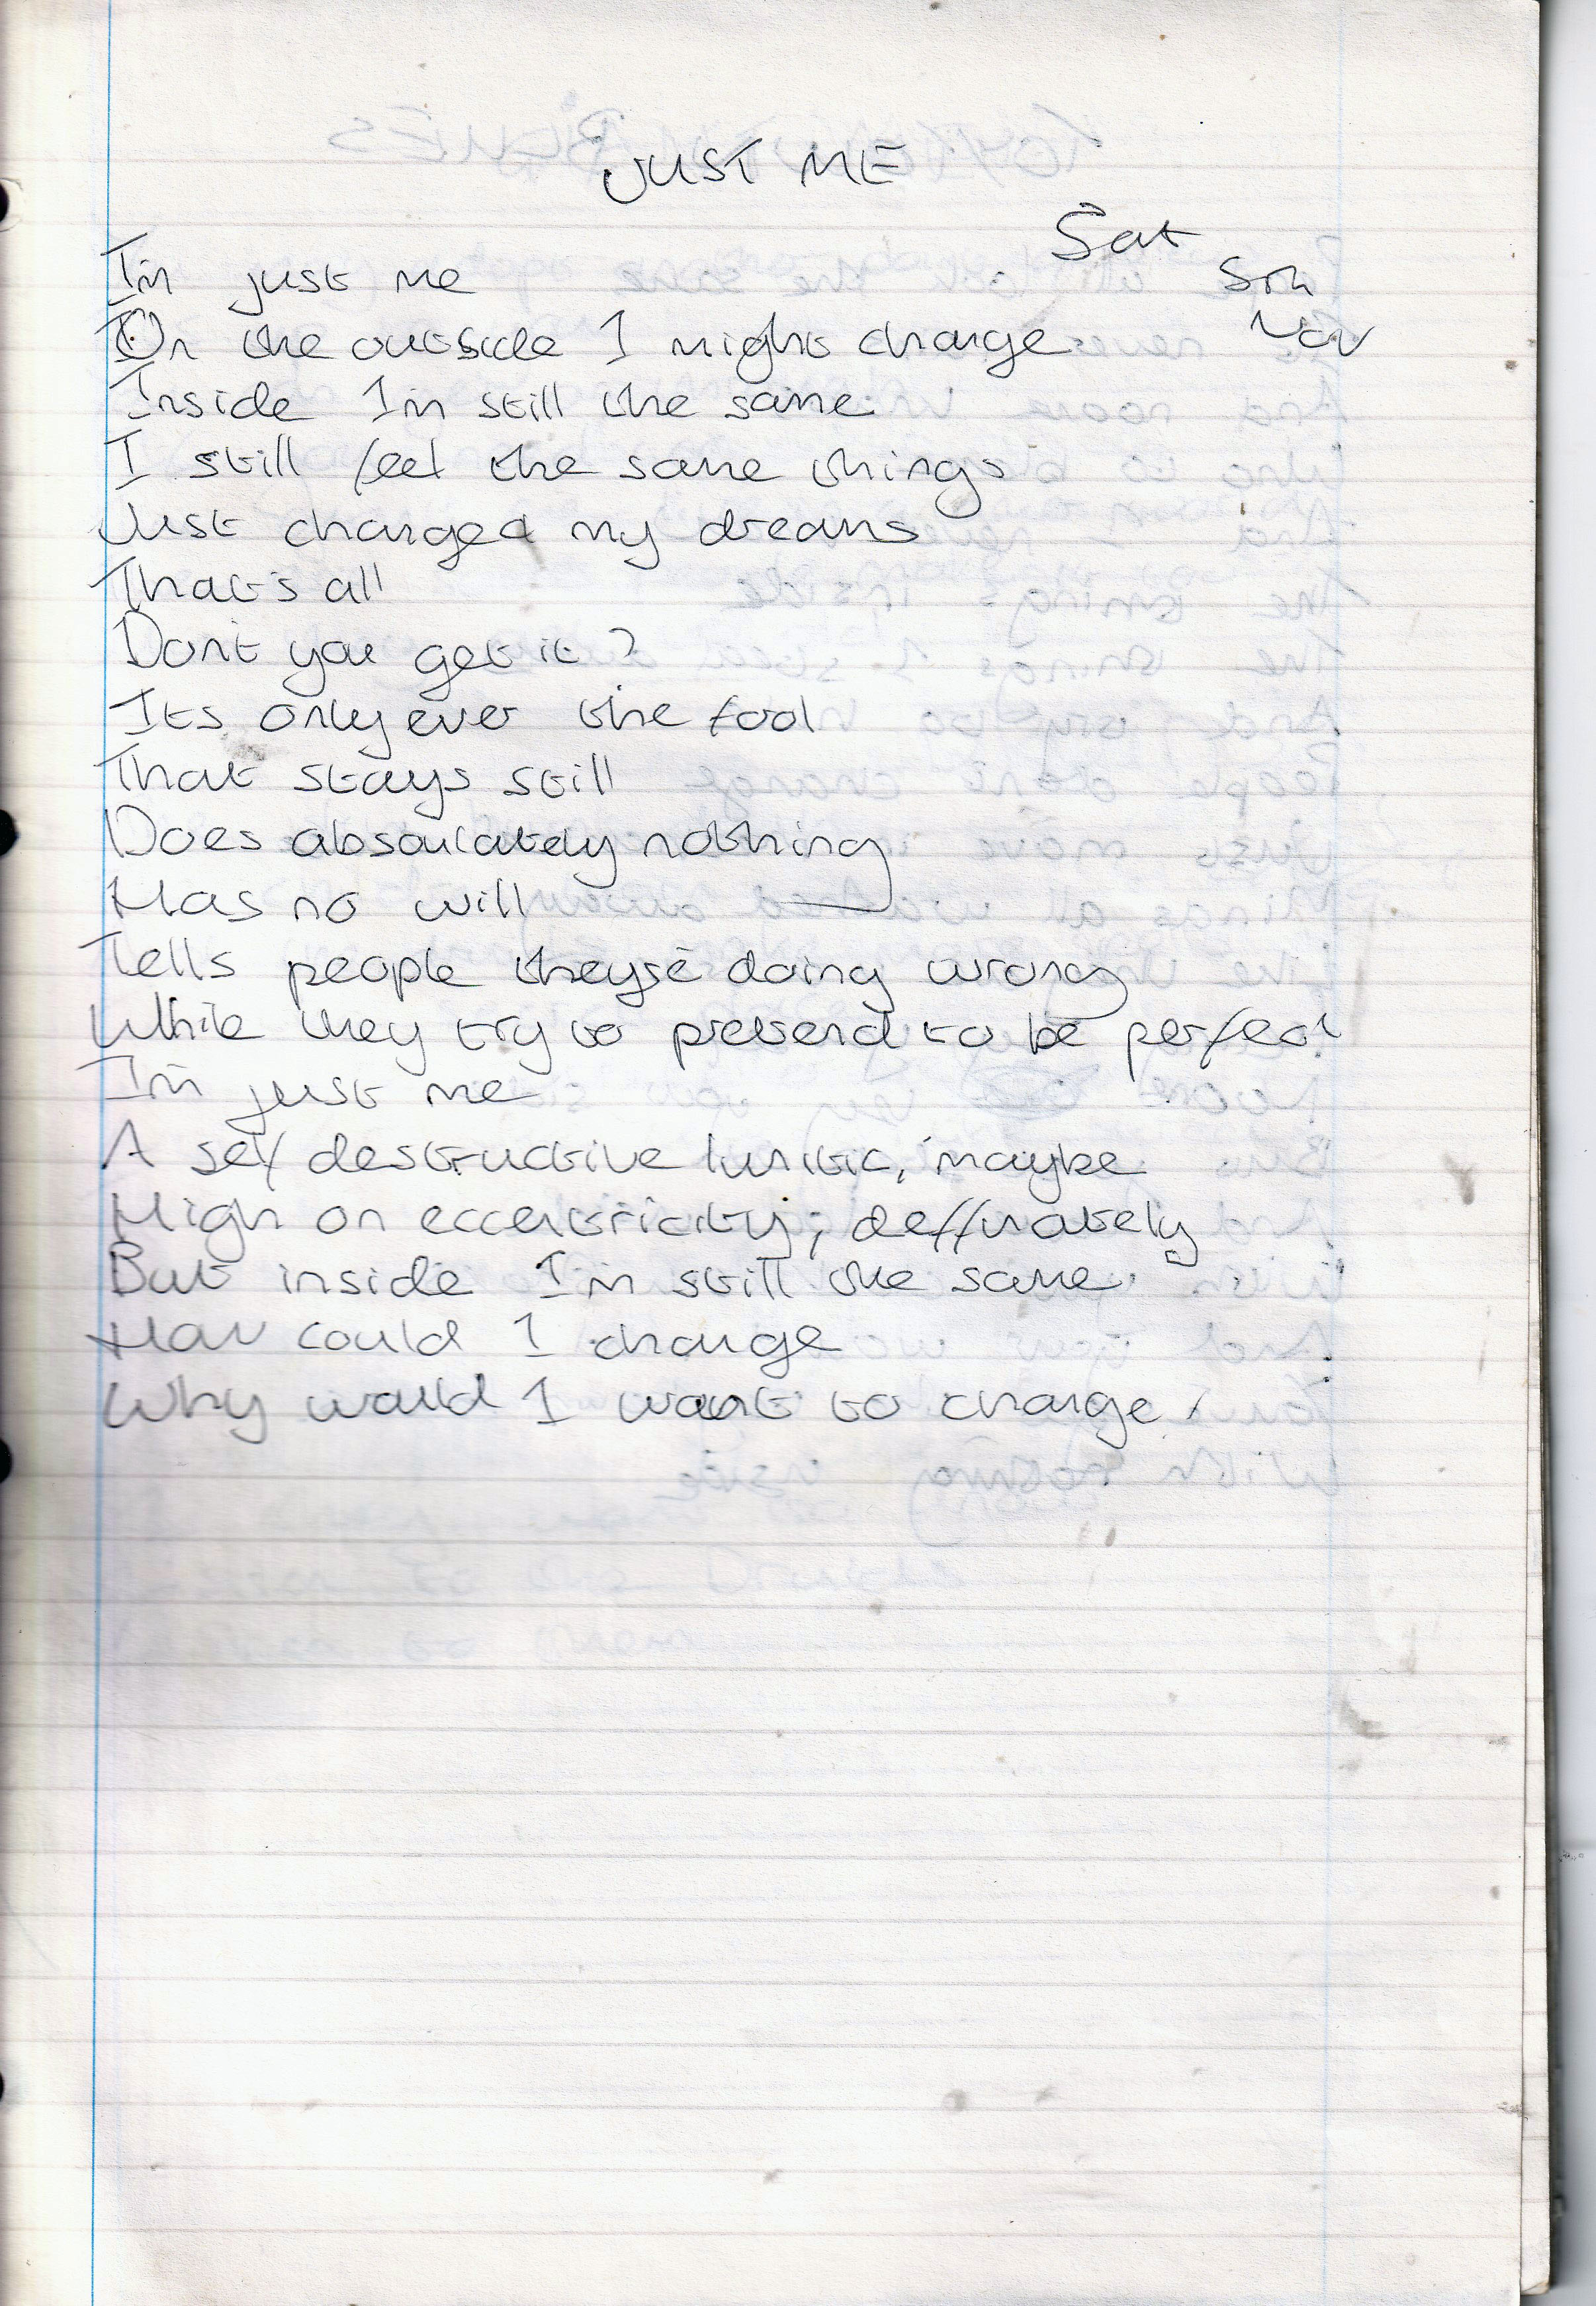 JUST ME
Sat
5th
Nov
I'm just me
On the outside I might change
Inside I'm still the same
I still feel the same things
Just changed my dreams
That's all
Don't you get it?
Its only ever the fool
That stays still
Does absoulutely nothing
Has no will
Tells people they're doing wrong
While they try to pretend to be perfect
I'm just me
A self destructive lunitic, maybe
High on eccentricity, deffinately
But inside I'm still the same
How could I change
Why would I want to change